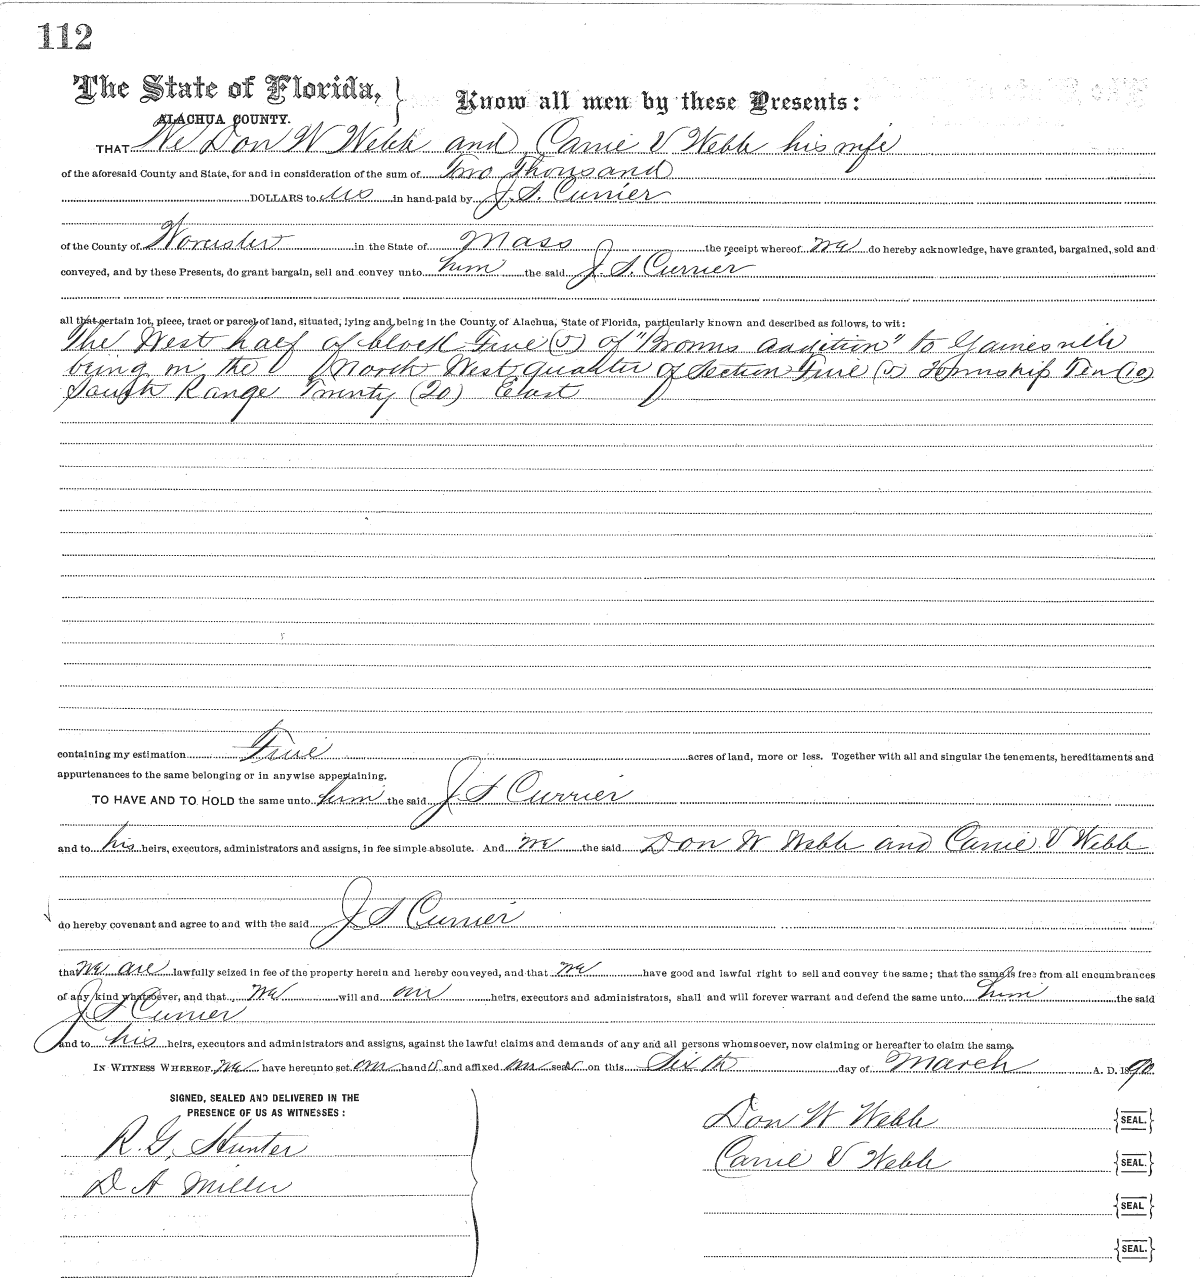 112
The State of Florida, } Know all men by these Presents:
ALACHUA COUNTY.
THAT We Don W Webb and Carrie V Webb his wife
of the aforesaid County and State, for and in consideration of the sum of Two Thousand
DOLLARS to us in hand paid by J. S. Currier
of the County of Worcester in the State of Mass the receipt whereof we do hereby acknowledge, have granted, bargained, sold and
conveyed, and by these Presents, do grant bargain, sell and convey unto him the said J. S. Currier
all that certain lot, piece, tract or parcel of land, situated, lying and being in the County of Alachua, State of Florida, particularly known and described as follows, to wit:
The West half of block Five (5) of "Browns addition" to Gainesville
being in the North West quarter of Section Five (5) Township Ten (10)
South Range Twenty (20) East
containing my estimation Five acres of land, more or less. Together with all and singular the tenements, hereditaments and
appurtenances to the same belonging or in anywise appertaining.
TO HAVE AND TO HOLD the same unto him the said J S Currier
and to his heirs, executors, administrators and assigns, in fee simple absolute. And we the said Don W Webb and Carrie V Webb
do hereby covenant and agree to and with the said J S Currier
that we are lawfully seized in fee of the property herein and hereby conveyed, and that we have good and lawful right to sell and convey the same; that the same is free from all encumbrances
of any kind whatsoever, and that we will and our heirs, executors and administrators, shall and will forever warrant and defend the same unto him the said
J S Currier
and to his heirs, executors and administrators and assigns, against the lawful claims and demands of any and all persons whomsoever, now claiming or hereafter to claim the same.
IN WITNESS WHEREOF we have hereunto set our hands and affixed our seals on this Sixth day of March A. D. 1890.
SIGNED, SEALED AND DELIVERED IN THE
PRESENCE OF US AS WITNESSES:
R. G. Hunter
D A Miller
Don W Webb {SEAL.}
Carrie V Webb {SEAL.}
{SEAL}
{SEAL.}